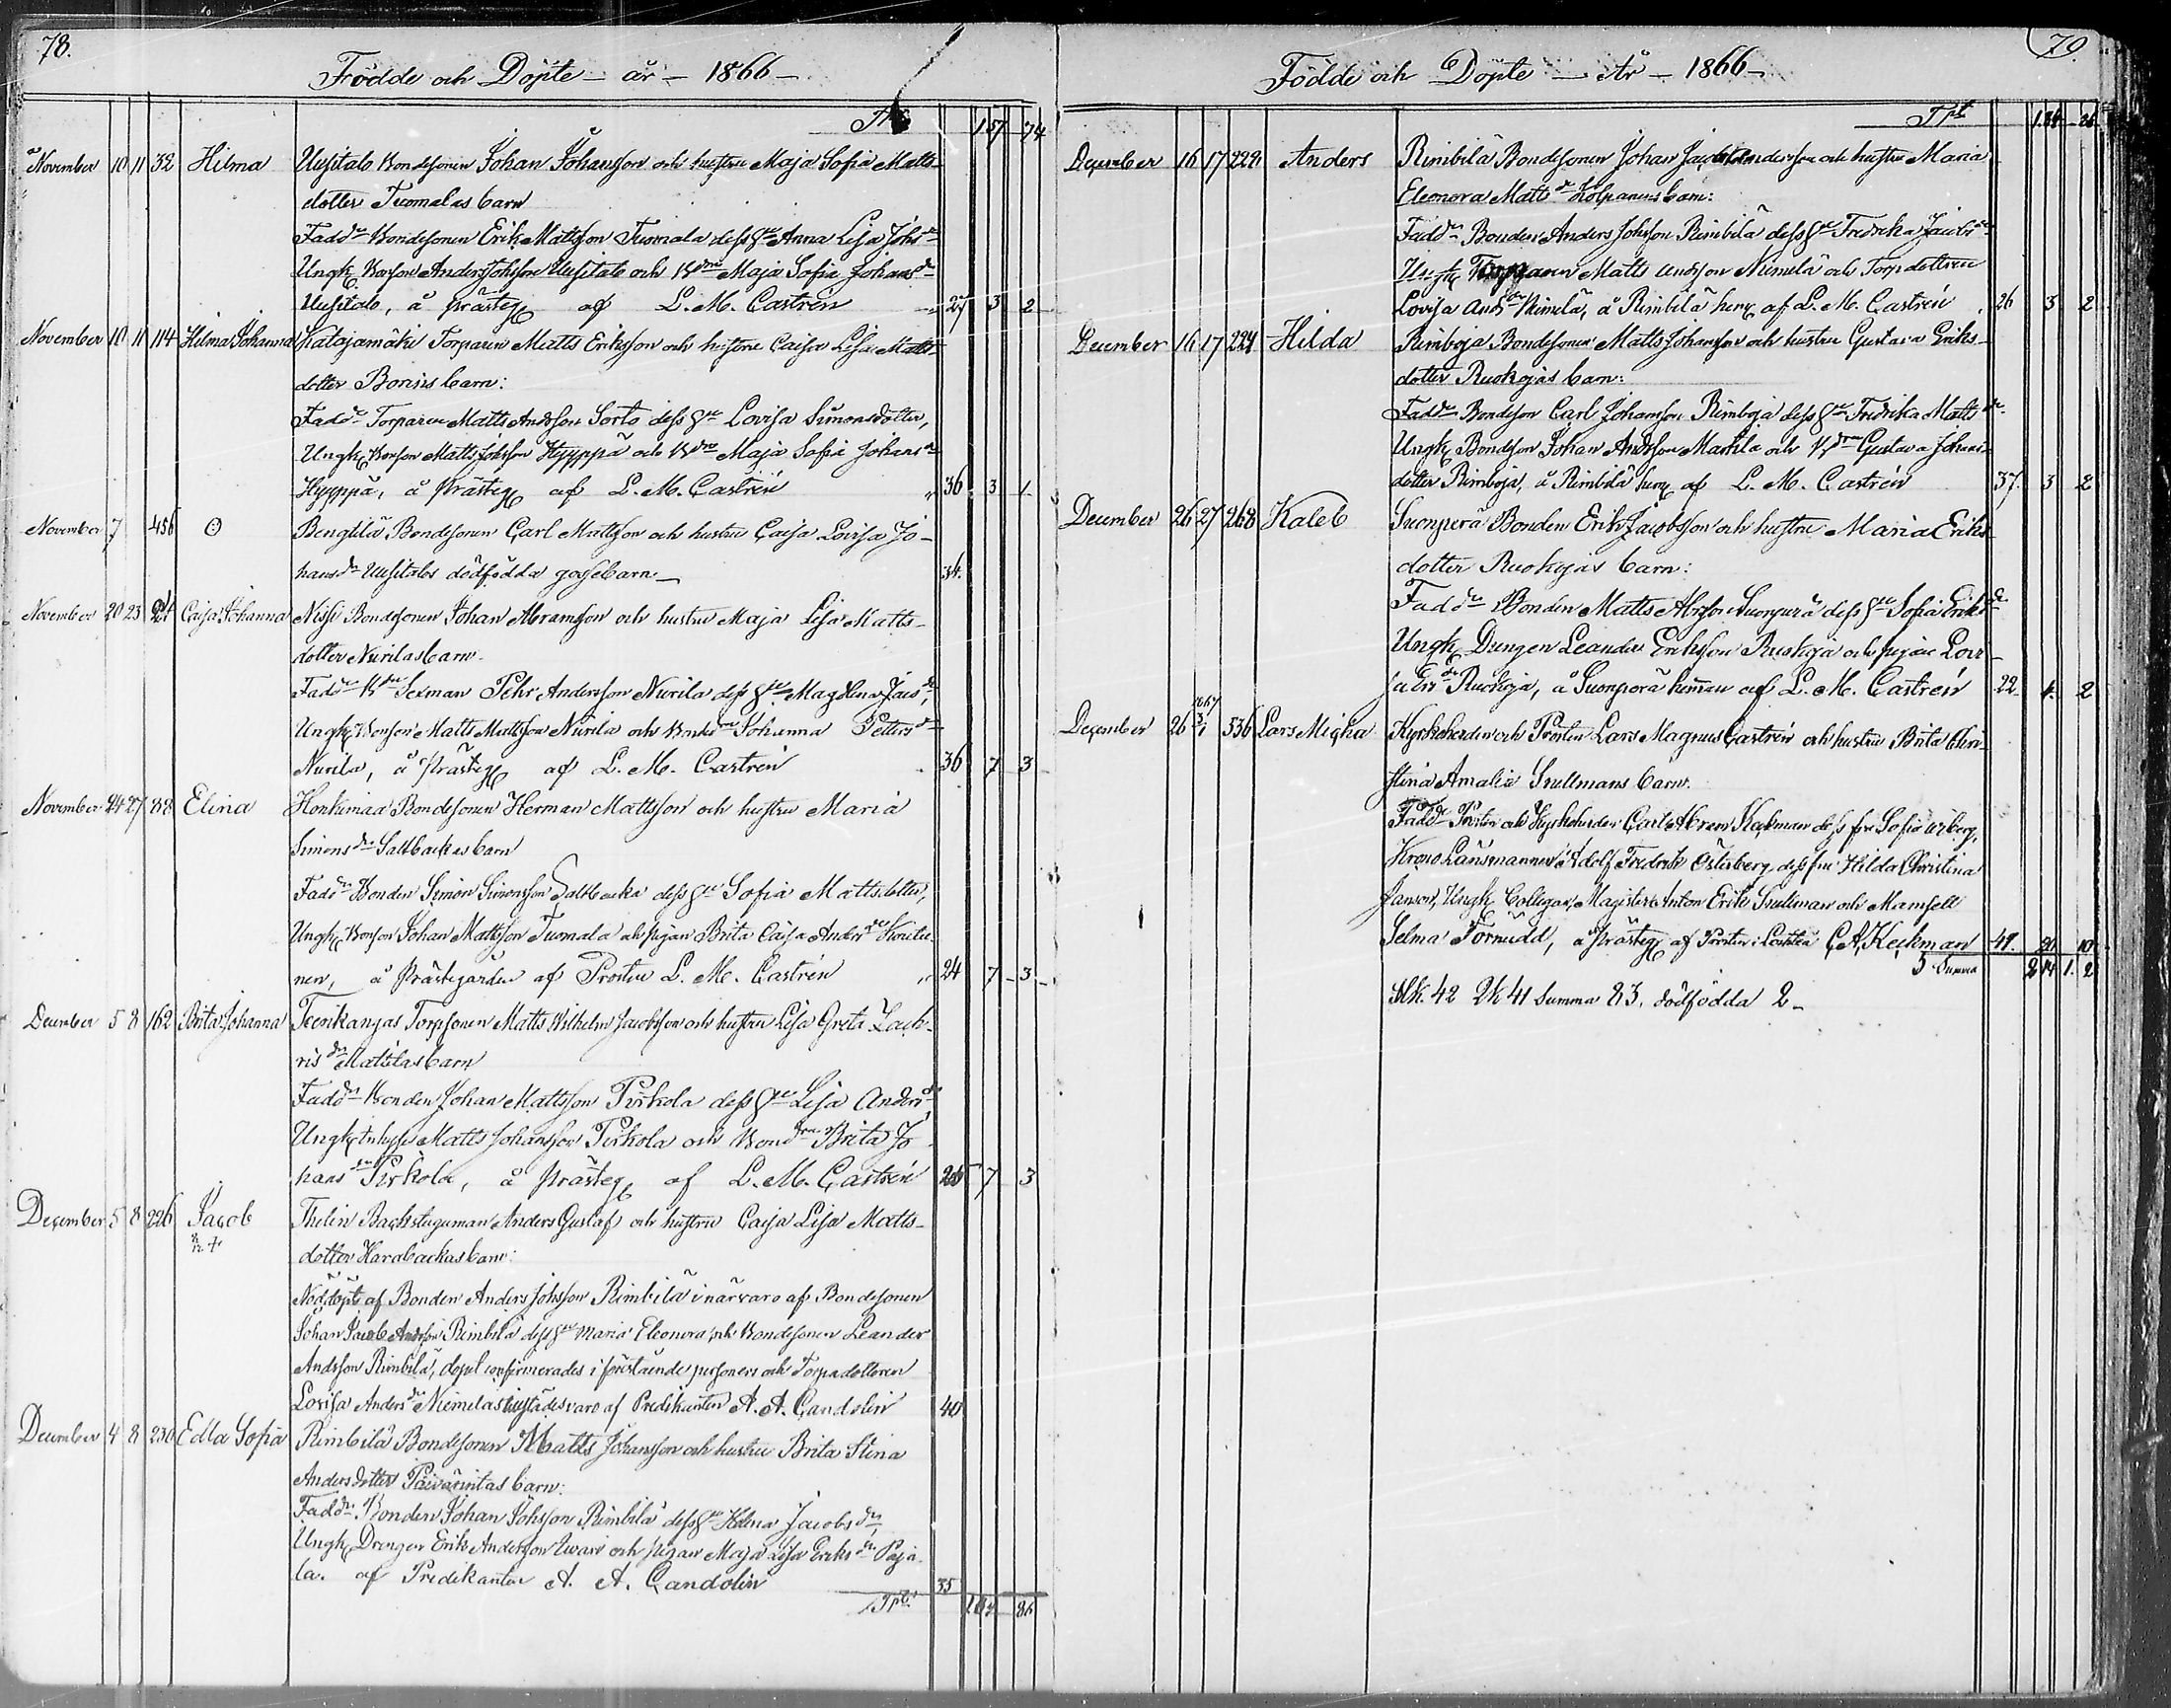 78.
Födde och Döpte – år – 1866 –
Tpt 157 74
November 10 11 32 Hilma Uusitalo Bondesonen Johan Johansson och hustru Maja Sofia Matts-
dotter Tuomalas barn
Fadd. Bondesonen Erik Mattsson Tuomala dess hu Anna Lisa Johsdr
Ungk. Bonson Anders Johsson Uusitalo och Bdrn Maja Sofia Johansdr
Uusitalo, å Prästeg. af L. M. Castrén 27 3 2
November 10 11 114 Hilma Johanna Katajamäki Torparen Matts Eriksson och hustru Caisa Lisa Matts-
dotter Bonins barn:
Fadd. Torparen Matts Andsson Sorto dess hu Lovisa Simonsdotter,
Ungk. Bonson Matts Johsson Hyyppä och Bdrn Maja Sofia Johansdr
Hyyppä, å Prästeg. af L. M. Castrén 36 3 1
November 7 456 Bengtilä Bondesonen Carl Mattsson och hustru Caisa Lovisa Jo-
hansdr Uusitalos dödfödda gossebarn – 34.
November 20 23 24 Caisa Johanna Nisse Bondesonen Johan Abramsson och hustru Maja Lisa Matts-
dotter Nurilas barn.
Fadd. Sexman Pehr Andersson Nurila dess hu Magdlena
Ungk. Bonson Matts Mattsson Nurila och Johanna Pettersdr
Nurila, å Prästeg. af L. M. Castrén 36 7 3
November 24 27 88 Elina Honkimaa Bondesonen Herman Mattsson och hustru Maria
Simonsdr Saltbackas barn
Fadd. Bonden Simon Simonsson Saltbacka dess hu Sofia Mattsdotter,
Ungk. Bonson Johan Mattsson Tuomala och pigan Brita Caisa Andersdr
nen, å Prästegården af Prosten L. M. Castrén 24 7 3
December 5 8 162 Brita Johanna Torpsonen Matts Wilhelm Jacobsson och hustru Lisa Greta Zach-
risdr Mattilas barn
Fadd. Bonden Johan Mattsson Pirkola dess hu Lisa Andersdr,
Ungk. Inhyse Matts Johansson Pirkola och Brita Jo
hansdr Pirkola, å Prästeg. af L. M. Castrén 26 7 3
December 5 8 226 Jacob Thelin Backstuguman Anders Gustaf och hustru Caisa Lisa Matts-
dotter Harabackas barn:
Nöddöpt af Bonden Anders Johsson Rimbilä i närvaro af Bondesonen
Johan Jacob Andsson Rimbilä dess hu Maria Eleonora och Bondesonen Leander
Andsson Rimbilä, dopet confirmerades i förestående personers och Torpdottren
Lovisa Andersdr Niemeläs tillstädesvaro af Predikanten A. A. Candolin 40
December 4 8 230 Edla Sofia Rimbilä Bondesonen Matts Johansson och hustru Brita Stina
Andersdotter Päivärintas barn:
Fadd. Bonden Johan Johsson Rimbilä dess hu Helena Jacobsdr,
Ungk. Drengen Erik Andersson och pigan Maja Lisa Eriksdr Paja-
la. af Predikanten A. A. Candolin 35
Tpt 184 86
79.
Födde och Döpte – År – 1866 –
Tpt 184 86
December 16 17 228 Anders Rimbilä Bondesonen Johan Jacob Andersson och hustru Maria
Eleonora Mattsdr Kolpanens barn:
Fadd. Bonden Anders Johsson Rimbilä dess hu Fredrika Jacobsdr
Ungk. Torparen Matts Andsson Niemelä och Torpdottren
Lovisa Andsdr Niemelä, å Rimbilä hem. af L. M. Castrén 26 3 2
December 16 17 224 Hilda Rimboja Bondesonen Matts Johansson och hustru Gustava Eriks-
dotter Ruokojas barn:
Fadd. Bondeson Carl Johansson Rimboja dess hu Fredrika Mattsdr.
Ungk. Bondson Johan Andsson Markila och Bdrn Gustava Johans-
dotter Rimboja, å Rimbilä hem. af L. M. Castrén 37. 3 2
December 26 27 268 Kaleb Suonperä Bonden Erik Jacobsson och hustru Maria Eriks-
dotter Ruokojas barn:
Fadd. Bonden Matts Abrsson Suonperä dess hu Sofia Eriksdr
Ungk. Drengen Leander Eriksson Ruokoja och pigan Lovi-
sa Ersdr Ruokoja, å Suonperä hemman af L. M. Castrén 22. 4. 2
1867
December 26 3/1 536 Lars Micha Kyrkoherden och Prosten Lars Magnus Castrén och hustru Brita Chri-
stina Amalia Snellmans barn.
Fadd. Prosten och Kyrkoherden Carl Abram Keckman dess fru Sofia Wiberg,
Krono Länsmannen Adolf Fredrik Österberg, dess fru Hilda Christina
Janson, Ungk. Collegan, Magister Anton Erik Snellman och Mamsell
Selma Fornudd, å Prästeg. af Prosten i Lochteå C. A. Keckman 41. 20 10
Summa 214 1. 2
Mk. 42 Qk 41 Summa 83. dödfödda 2 –